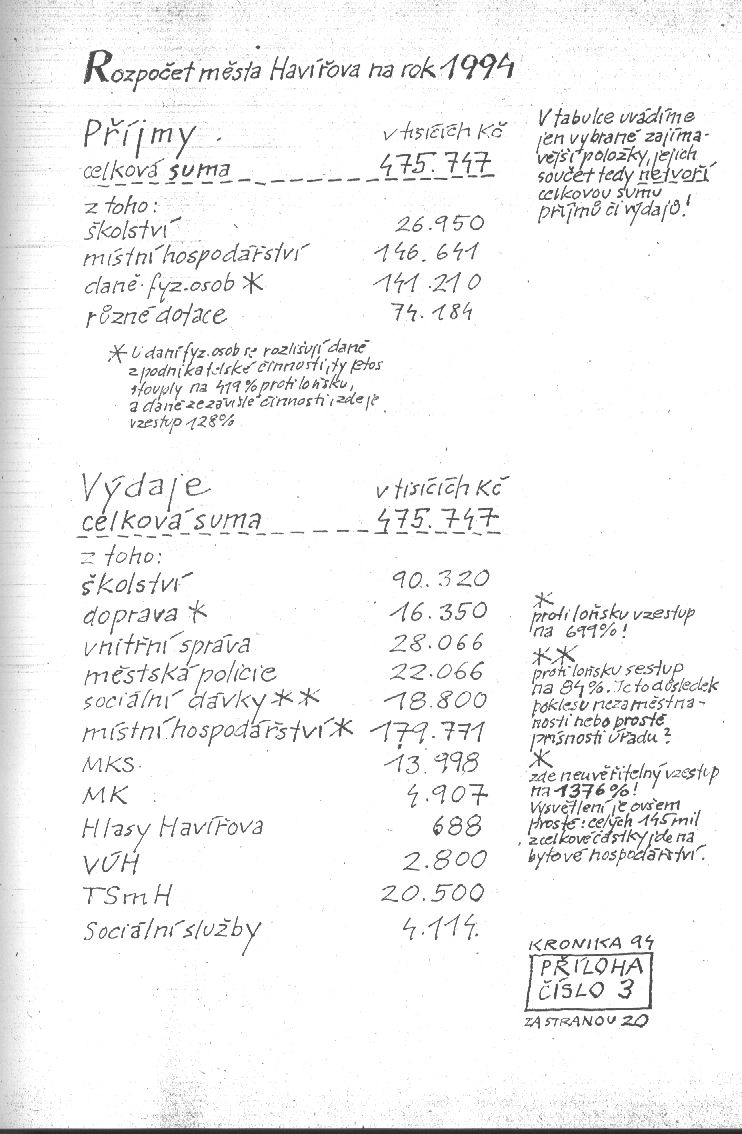 Rozpočet města Havířova na rok 1994
Příjmy v tisících Kč
celková suma 475.747
z toho:
školství 26.950
místní hospodářství 146.641
daně fyz.osob * 141.210
různé dotace 74.184
* U daní fyz.osob se rozlišují daně
z podnikatelské činnosti, ty letos
stouply na 419% proti loňsku,
a daně ze závislé činnosti, zde je
vzestup 128%
V tabulce uvádíme
jen vybrané zajíma-
vější položky, jejich
součet tedy netvoří
celkovou sumu
příjmů či výdajů!
Výdaje v tisících Kč
celková suma 475.747
z toho:
školství 90.320
doprava * 16.350
vnitřní správa 28.066
městská policie 22.066
sociální dávky ** 18.800
místní hospodářství * 179.771
MKS 13.998
MK 4.907
Hlasy Havířova 688
VÚH 2.800
TSmH 20.500
Sociální služby 4.114.
*
proti loňsku vzestup
na 699%!
**
proti loňsku sestup
na 84%. Je to důsledek
poklesu nezaměstna-
nosti nebo prosté
přísnosti úřadu?
*
zde neuvěřitelný vzestup
na 1376%!
Vysvětlení je ovšem
prosté: celých 145 mil
z celkové částky jde na
bytové hospodářství.
KRONIKA 94
PŘÍLOHA
ČÍSLO 3
ZA STRANOU 20